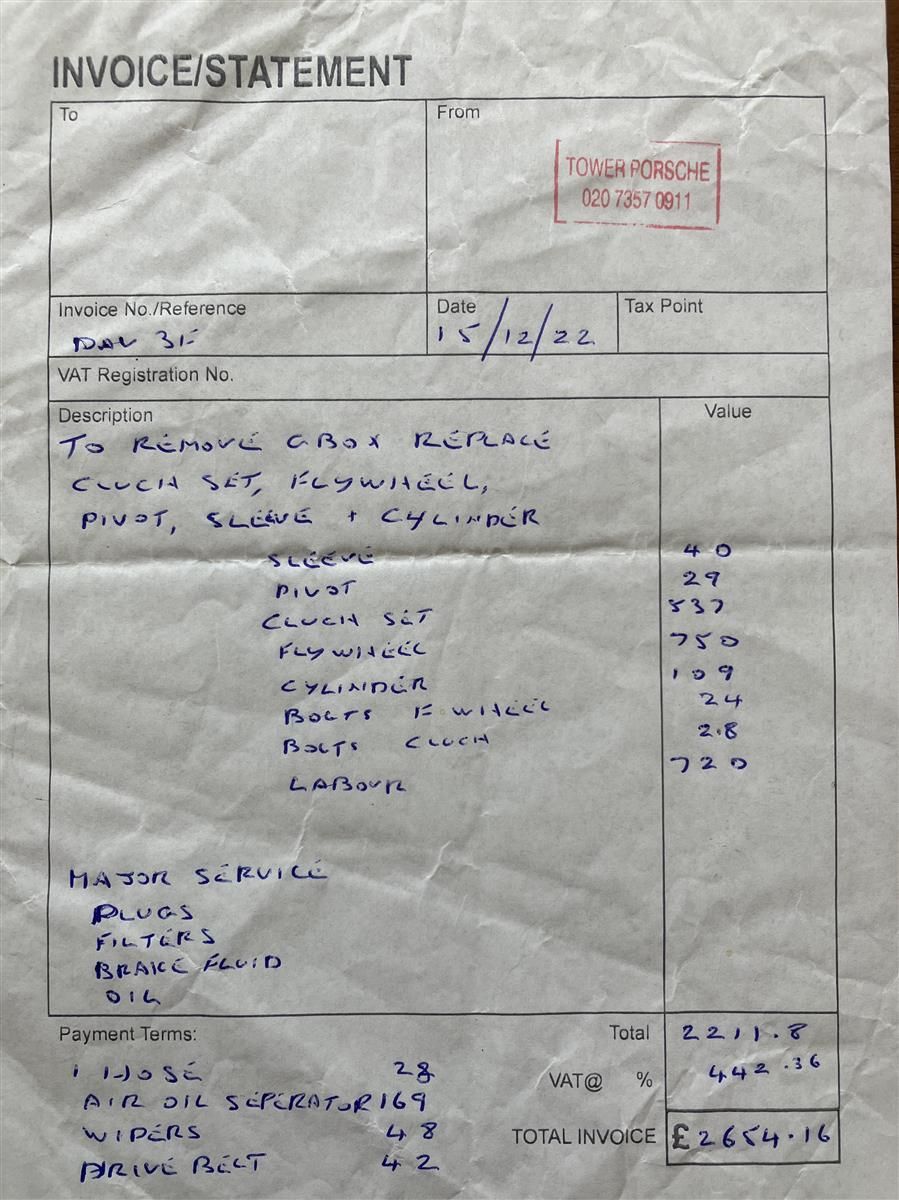 INVOICE/STATEMENT
To
From
TOWER PORSCHE
020 7357 0911
Invoice No./Reference
Date
Tax Point
15/12/22
VAT Registration No.
Description
Value
TO REMOVE GBOX REPLACE
CLUCH SET, FLYWHEEL,
PIVOT, SLEEVE + CYLINDER
SLEEVE 40
PIVOT 29
CLUCH SET 537
FLYWHEEL 750
CYLINDER 109
BOLTS F WHEEL 24
BOLTS CLUCH 2.8
LABOUR 720
MAJOR SERVICE
PLUGS
FILTERS
BRAKE FLUID
OIL
Payment Terms:
Total 2211.8
1 HOSE 28
VAT@ % 442.36
AIR OIL SEPERATOR 169
WIPERS 48
TOTAL INVOICE £2654.16
DRIVE BELT 42